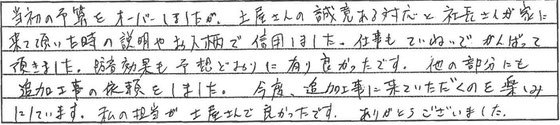 当初の予算をオーバーしましたが、土屋さんの誠意ある対応と社長さんが家に
来て頂いた時の説明やお人柄で信用しました。仕事もていねいでがんばって
頂きました。防音効果も予想どおりに有り良かったです。他の部分にも
追加工事の依頼をしました。今度、追加工事に来ていただくのを楽しみ
にしています。私の担当が土屋さんで良かったです。ありがとうございました。